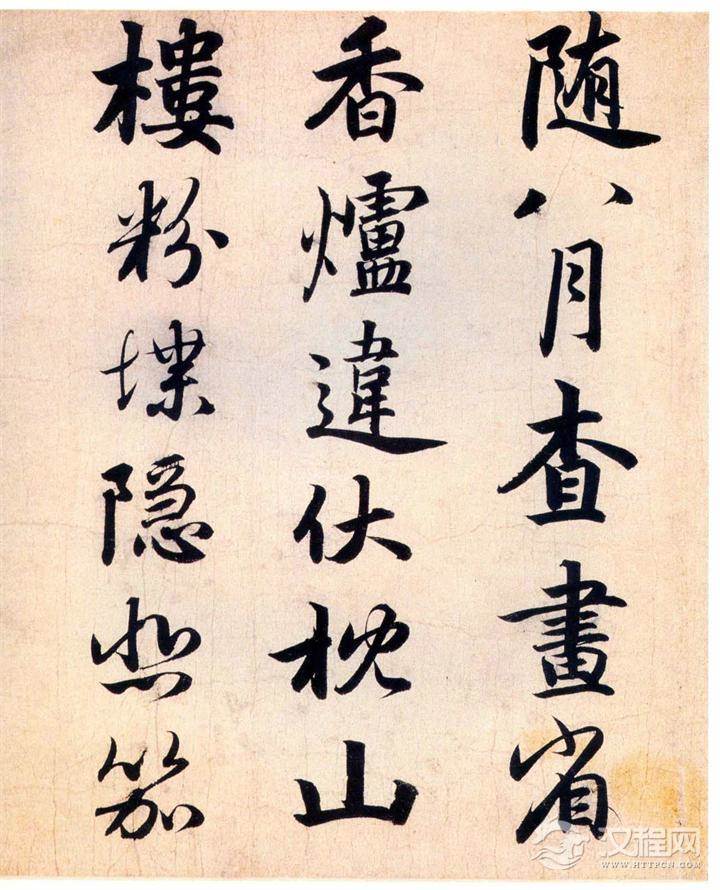 随八月查畫省
香爐違伏枕山
樓粉堞隐悲笳
汉程网
WWW.HTTPCN.COM